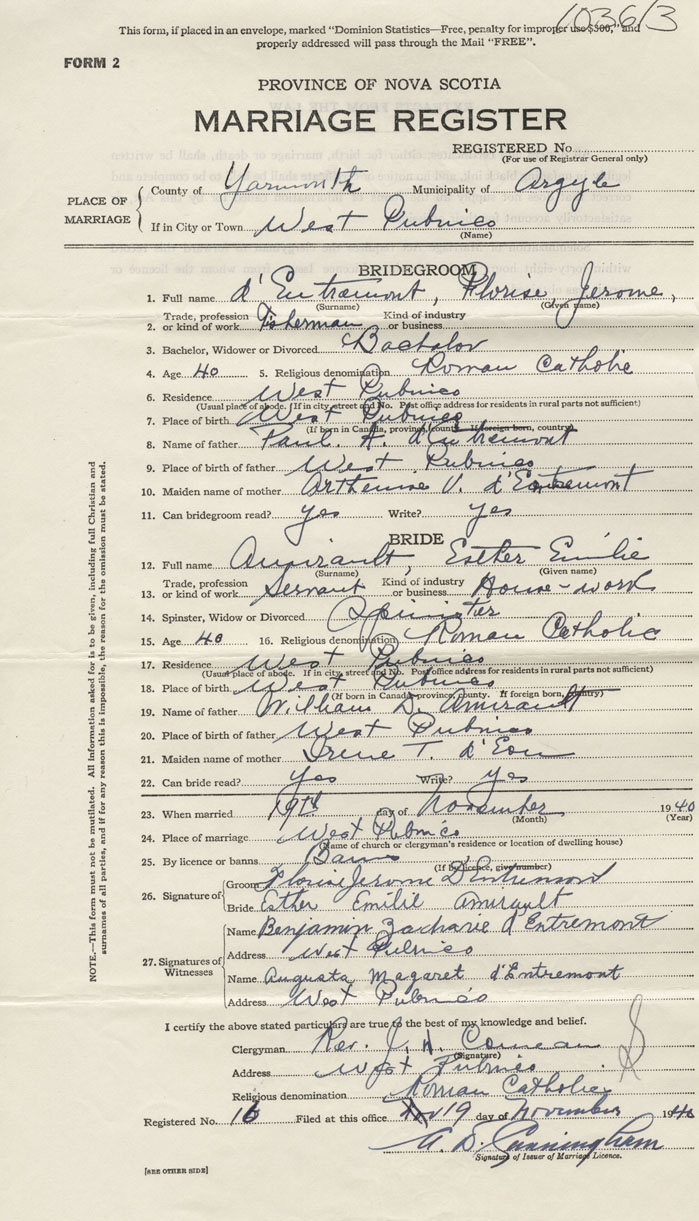 1036/3
This form, if placed in an envelope, marked "Dominion Statistics—Free, penalty for improper use $300," and
properly addressed will pass through the Mail "FREE".
FORM 2
PROVINCE OF NOVA SCOTIA
MARRIAGE REGISTER
REGISTERED No.
(For use of Registrar General only)
PLACE OF MARRIAGE
County of Yarmouth Municipality of Argyle
If in City or Town West Pubnico
(Name)
BRIDEGROOM
1. Full name d'Entremont, Florise, Jerome,
(Surname) (Given name)
2. Trade, profession or kind of work Fisherman Kind of industry or business
3. Bachelor, Widower or Divorced Bachalor
4. Age 40 5. Religious denomination Roman Catholic
6. Residence West Pubnico
(Usual place of abode. If in city, street and No. Post office address for residents in rural parts not sufficient)
7. Place of birth West Pubnico
(If born in Canada, province, county. If foreign born, country)
8. Name of father Paul. A. d'Entremont
9. Place of birth of father West Pubnico
10. Maiden name of mother V. d'Entremont
11. Can bridegroom read? yes Write? yes
BRIDE
12. Full name Amirault, Esther Emilie
(Surname) (Given name)
13. Trade, profession or kind of work Servant Kind of industry or business House-work
14. Spinster, Widow or Divorced Spinster
15. Age 40 16. Religious denomination Roman Catholic
17. Residence West Pubnico
(Usual place of abode. If in city, street and No. Post office address for residents in rural parts not sufficient)
18. Place of birth West Pubnico
(If born in Canada, province, county. If foreign born, country)
19. Name of father William D. Amirault
20. Place of birth of father West Pubnico
21. Maiden name of mother Irene T. d'Eon
22. Can bride read? yes Write? yes
23. When married 19th day of November 1940
(Month) (Year)
24. Place of marriage West Pubnico
(Name of church or clergyman's residence or location of dwelling house)
25. By licence or banns Banns
(If by licence, give number)
26. Signature of
Groom Florise Jerome
Bride Esther Emilie Amirault
27. Signatures of Witnesses
Name Benjamin Zacharie d'Entremont
Address West Pubnico
Name Augusta Magaret d'Entremont
Address West Pubnico
I certify the above stated particulars are true to the best of my knowledge and belief.
Clergyman Rev. J. H. Comeau
(Signature)
Address West Pubnico
Religious denomination Roman Catholic
Registered No. 16 Filed at this office Nov 19 day of November 1940
A. D. Cunningham
Signature of Issuer of Marriage Licence.
[SEE OTHER SIDE]
NOTE.—This form must not be mutilated. All information asked for is to be given, including full Christian and
surnames of all parties, and if for any reason this is impossible, the reason for the omission must be stated.